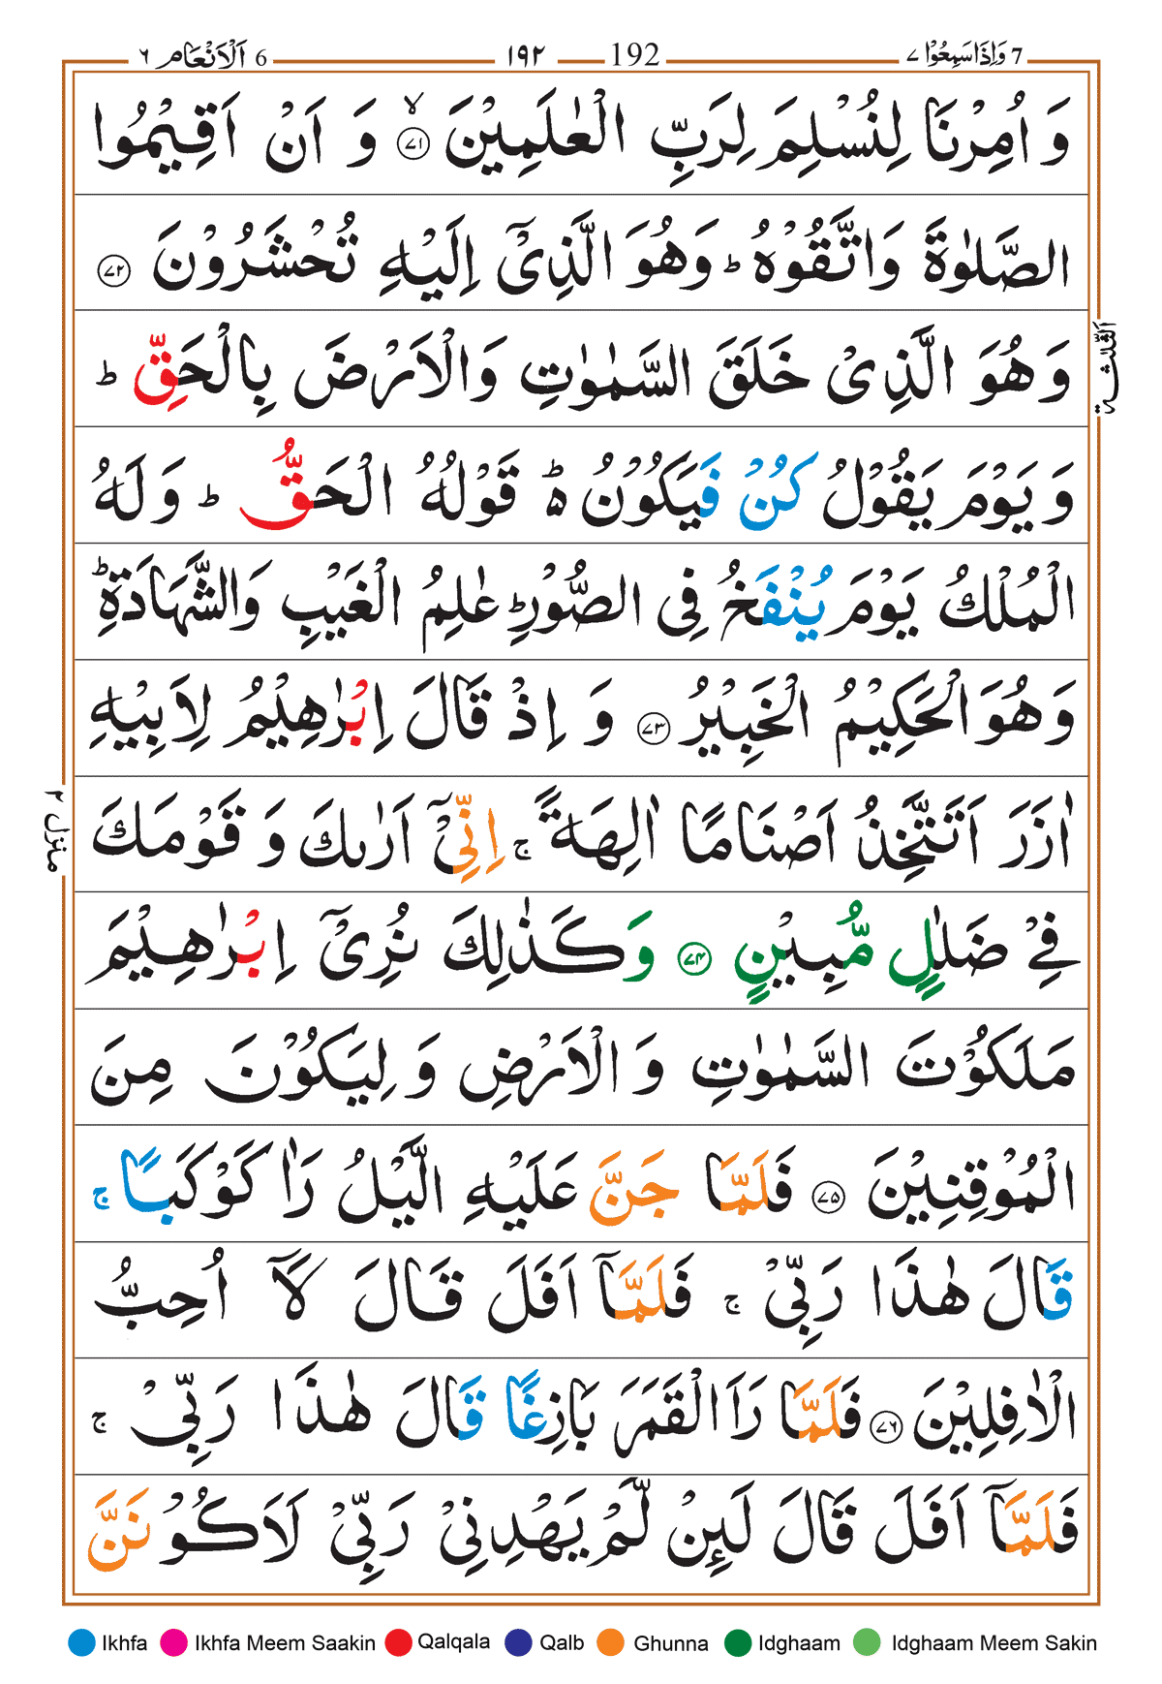 7 وَاِذَا سَمِعُوْا ٧ 192 ١٩٢ 6 اَلْاَنْعَام ٦
وَ اُمِرْنَا لِنُسْلِمَ لِرَبِّ الْعٰلَمِيْنَ ۙ﴿٧١﴾ وَ اَنْ اَقِيْمُوا
الصَّلٰوةَ وَاتَّقُوْهُ ؕ وَهُوَ الَّذِىْۤ اِلَيْهِ تُحْشَرُوْنَ ﴿٧٢﴾
وَهُوَ الَّذِىْ خَلَقَ السَّمٰوٰتِ وَالْاَرْضَ بِالْحَقِّ ؕ
اَلثَّلٰثَة
وَ يَوْمَ يَقُوْلُ كُنْ فَيَكُوْنُ ؕ۬ قَوْلُهُ الْحَقُّ ؕ وَلَهُ
الْمُلْكُ يَوْمَ يُنْفَخُ فِى الصُّوْرِ ؕ عٰلِمُ الْغَيْبِ وَالشَّهَادَةِ ؕ
وَهُوَ الْحَكِيْمُ الْخَبِيْرُ ﴿٧٣﴾ وَ اِذْ قَالَ اِبْرٰهِيْمُ لِاَبِيْهِ
اٰزَرَ اَتَتَّخِذُ اَصْنَامًا اٰلِهَةً ۚ اِنِّىْۤ اَرٰىكَ وَ قَوْمَكَ
منزل ٢
فِىْ ضَلٰلٍ مُّبِيْنٍ ﴿٧٤﴾ وَكَذٰلِكَ نُرِىْۤ اِبْرٰهِيْمَ
مَلَكُوْتَ السَّمٰوٰتِ وَ الْاَرْضِ وَ لِيَكُوْنَ مِنَ
الْمُوْقِنِيْنَ ﴿٧٥﴾ فَلَمَّا جَنَّ عَلَيْهِ الَّيْلُ رَاٰ كَوْكَبًا ۚ
قَالَ هٰذَا رَبِّىْ ۚ فَلَمَّاۤ اَفَلَ قَالَ لَاۤ اُحِبُّ
الْاٰفِلِيْنَ ﴿٧٦﴾ فَلَمَّا رَاَ الْقَمَرَ بَازِغًا قَالَ هٰذَا رَبِّىْ ۚ
فَلَمَّاۤ اَفَلَ قَالَ لَئِنْ لَّمْ يَهْدِنِىْ رَبِّىْ لَاَكُوْنَنَّ
Ikhfa Ikhfa Meem Saakin Qalqala Qalb Ghunna Idghaam Idghaam Meem Sakin